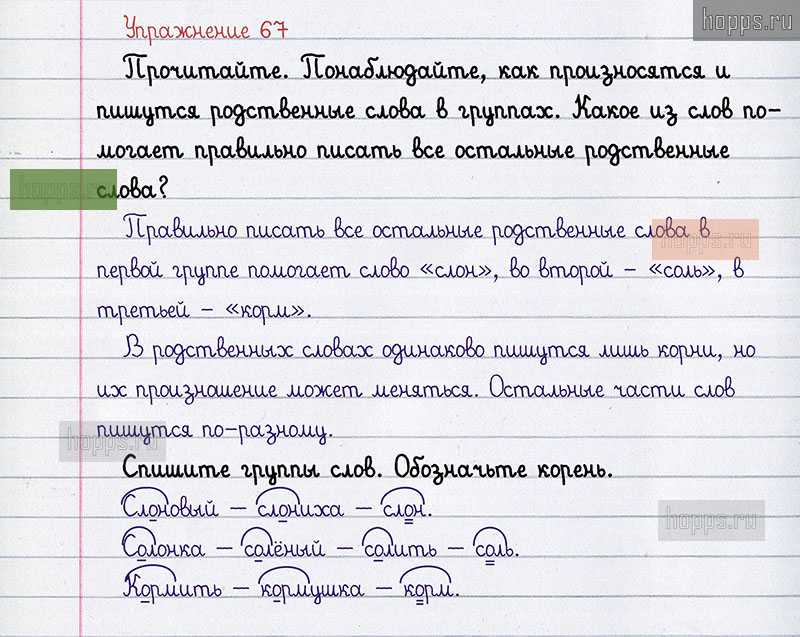 hopps.ru
Упражнение 67
Прочитайте. Понаблюдайте, как произносятся и
пишутся родственные слова в группах. Какое из слов по-
могает правильно писать все остальные родственные
слова?
hopps.ru
Правильно писать все остальные родственные слова в
hopps.ru
первой группе помогает слово «слон», во второй – «соль», в
третьей – «корм».
В родственных словах одинаково пишутся лишь корни, но
их произношение может меняться. Остальные части слов
пишутся по-разному.
hopps.ru
Спишите группы слов. Обозначьте корень.
Слоновый – слониха – слон.
hopps.ru
Солонка – солёный – солить – соль.
Кормить – кормушка – корм.